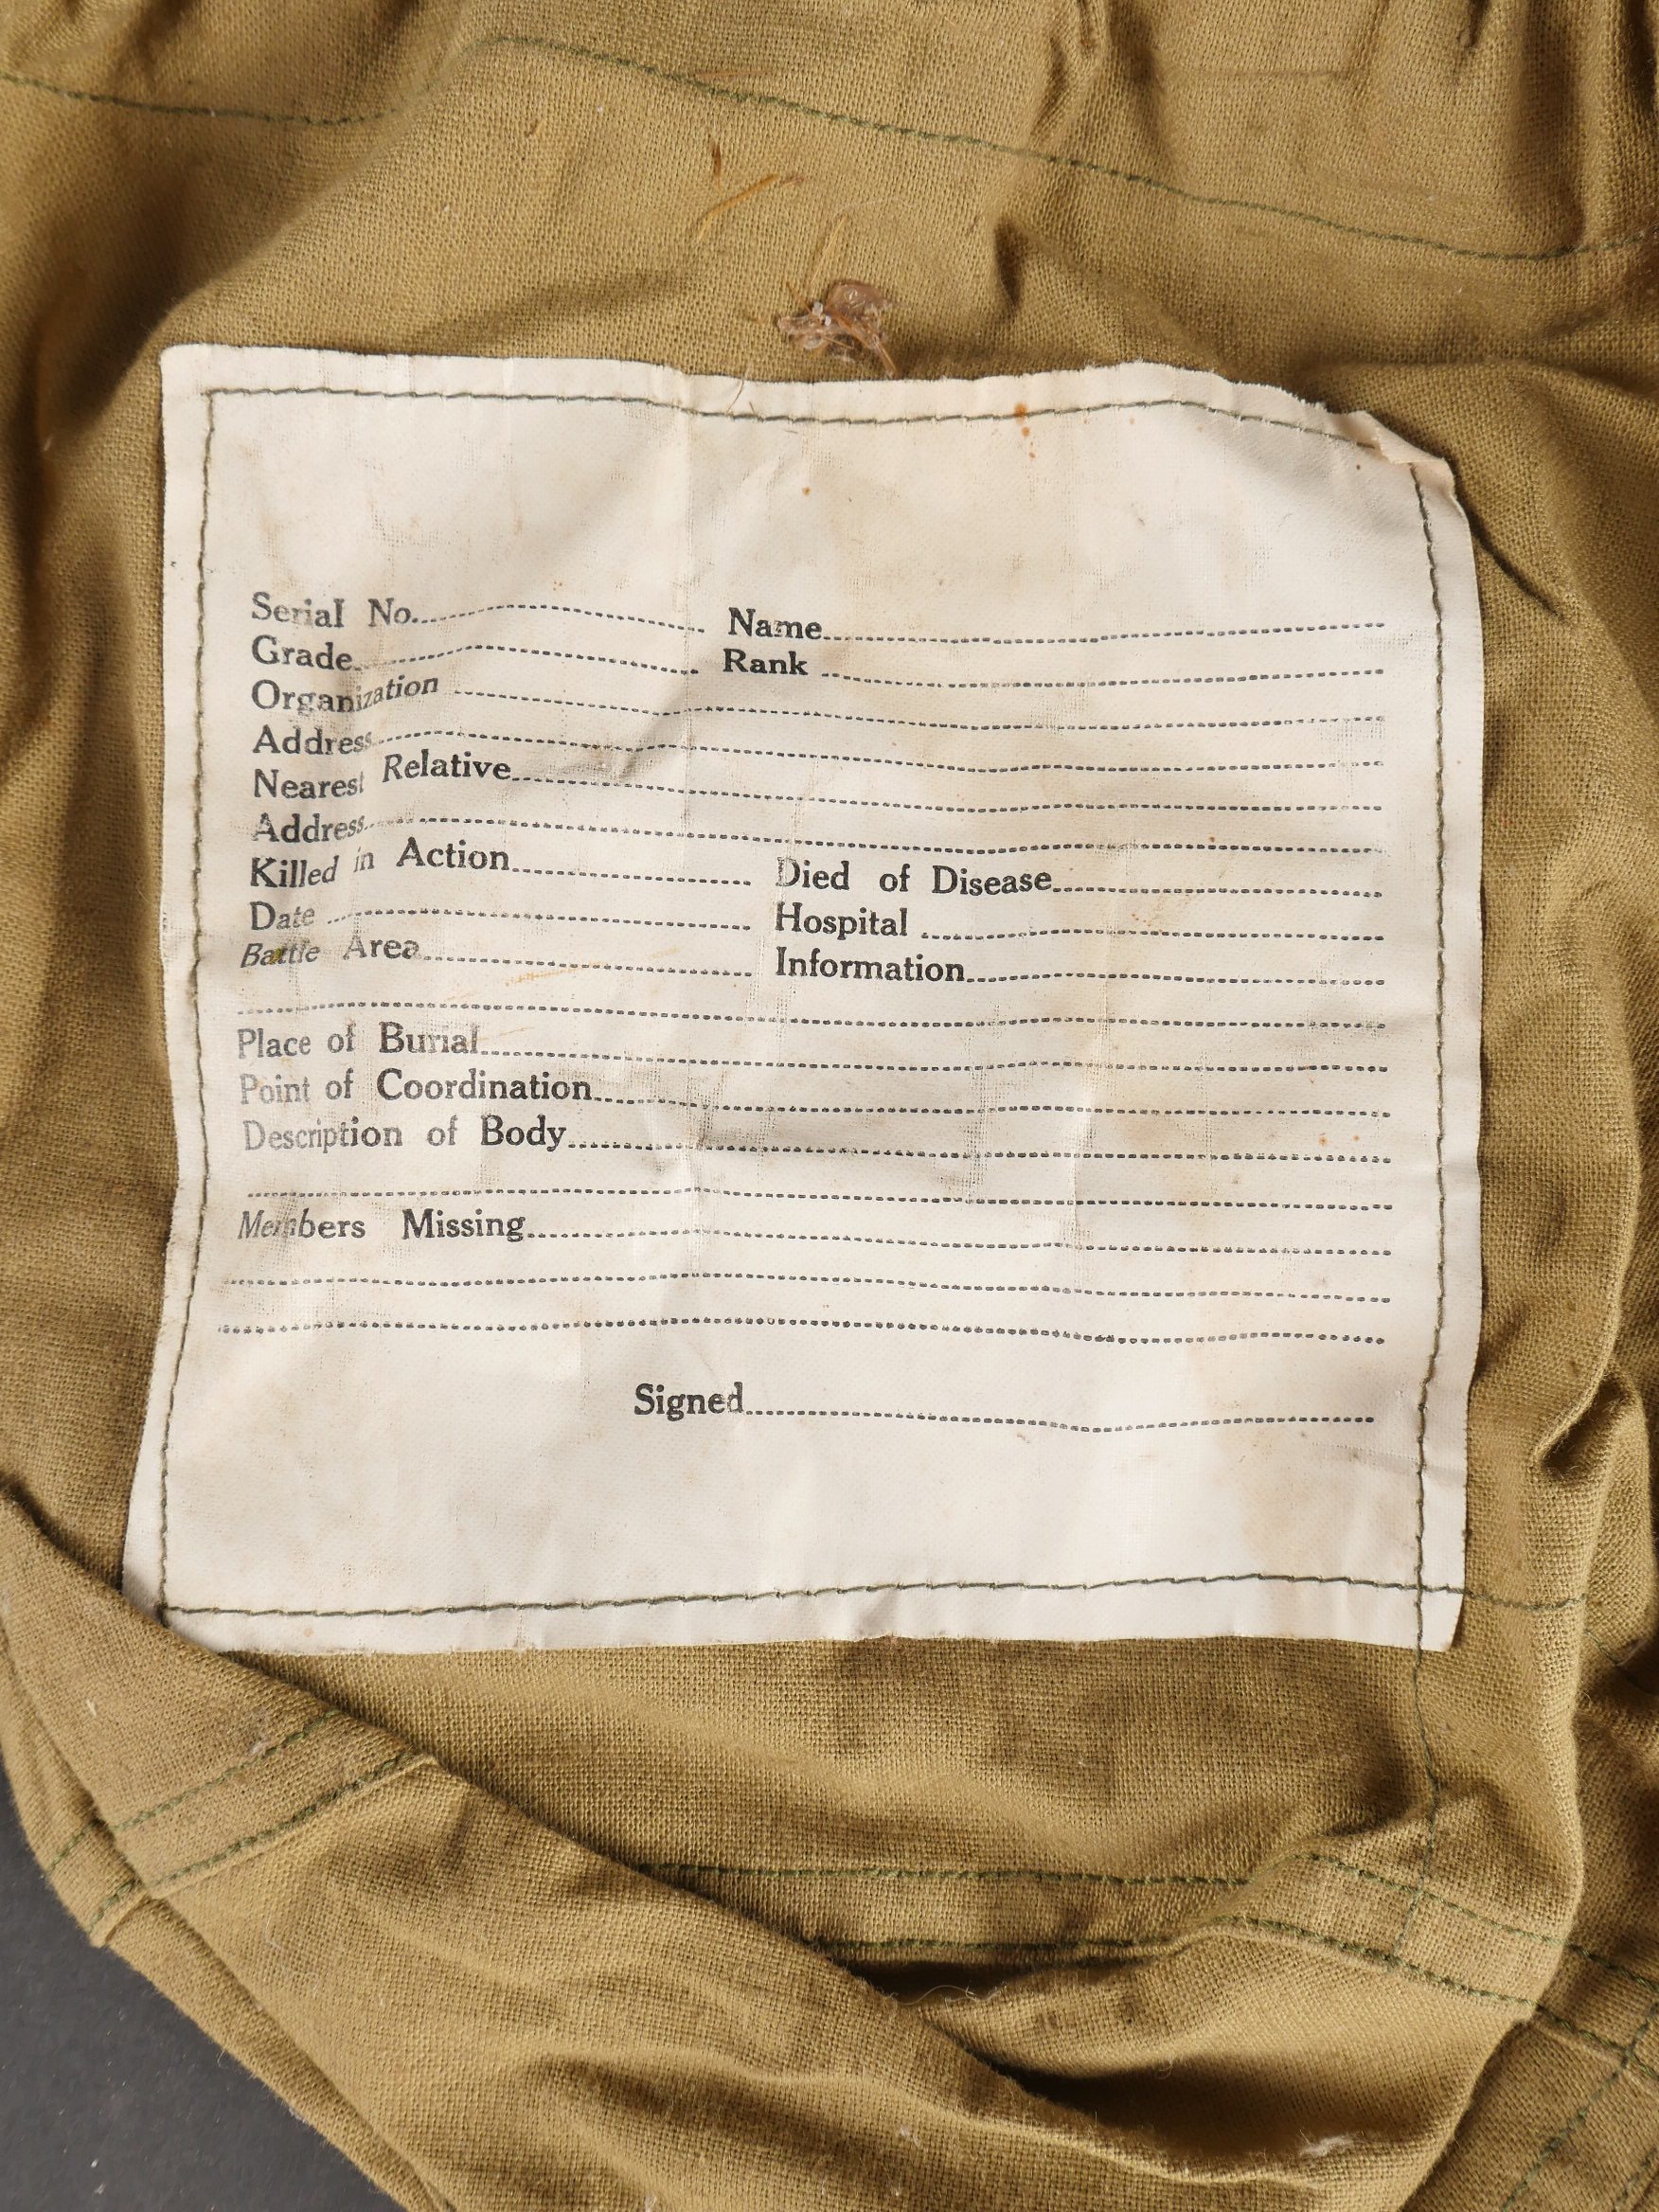 Serial No.................................... Name....................................
Grade.................................... Rank....................................
Organization....................................
Address....................................
Nearest Relative....................................
Address....................................
Killed in Action.................................... Died of Disease....................................
Date.................................... Hospital....................................
Battle Area.................................... Information....................................
Place of Burial....................................
Point of Coordination....................................
Description of Body....................................
Members Missing....................................
Signed....................................